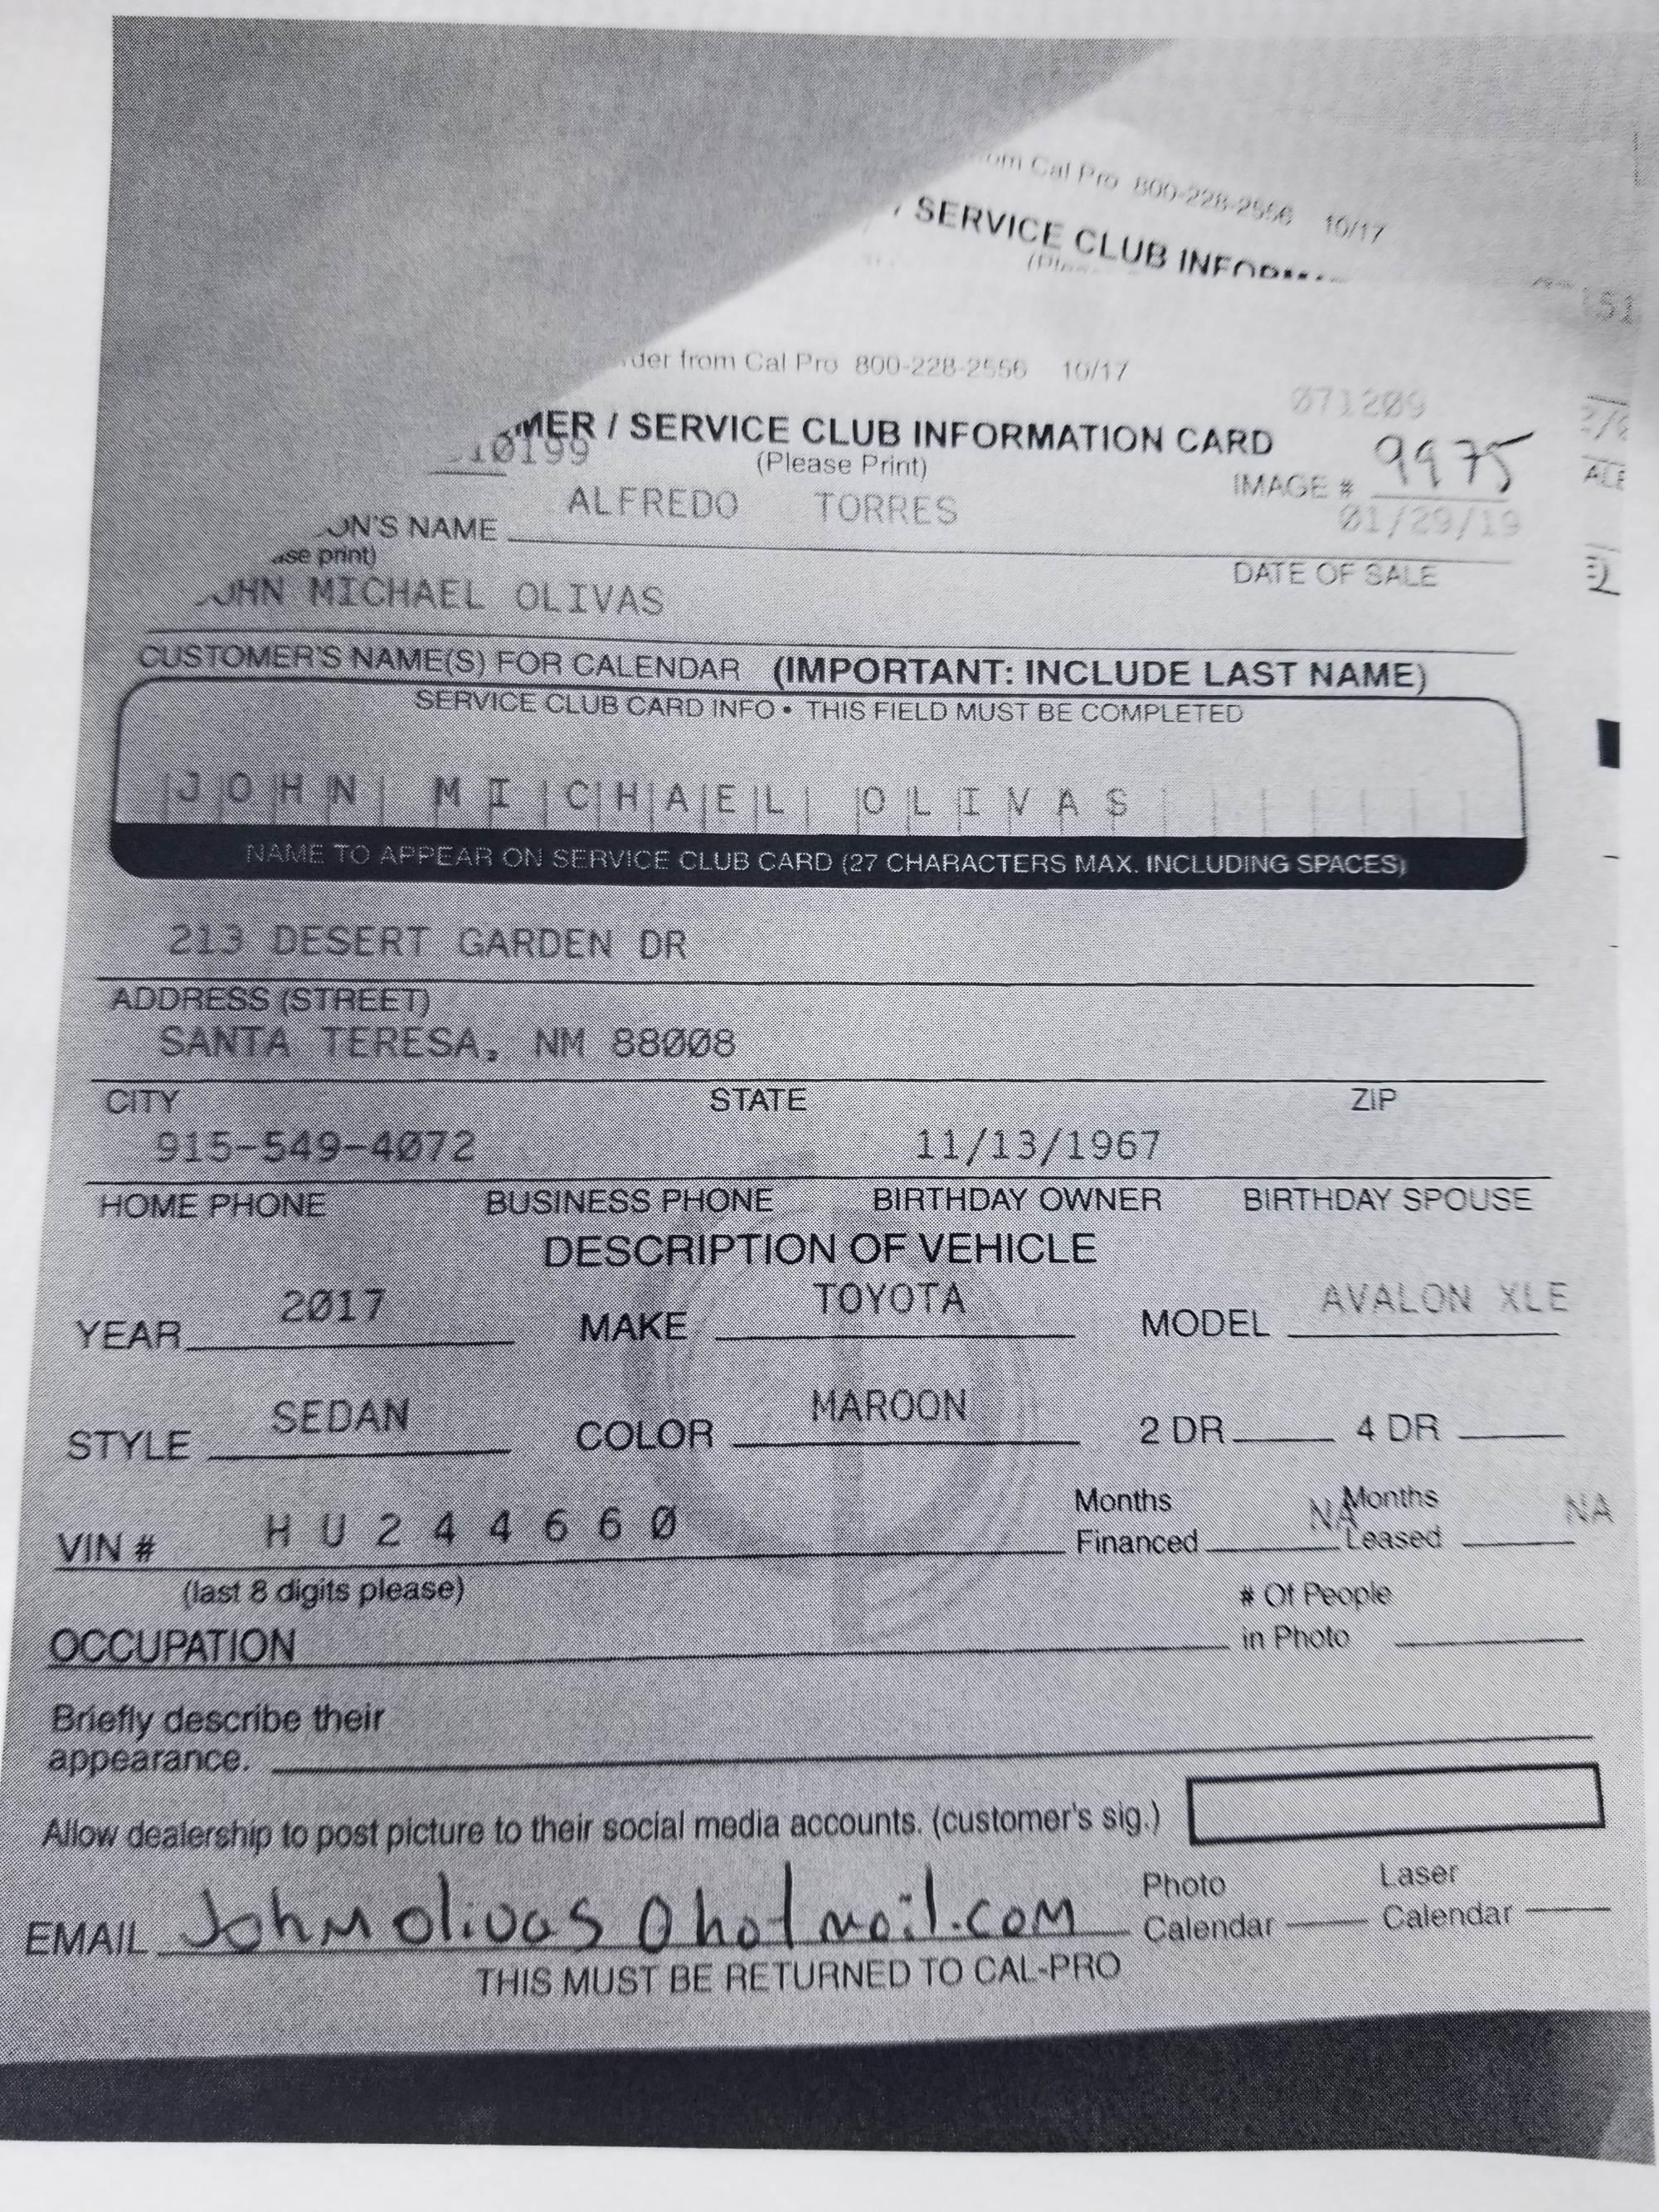 om Cal Pro 800-228-2556 10/17
SERVICE CLUB
der from Cal Pro 800-228-2556 10/17
071209
MER / SERVICE CLUB INFORMATION CARD
10199
(Please Print)
IMAGE # 9975
ALFREDO TORRES
01/29/19
ON'S NAME
se print)
DATE OF SALE
JOHN MICHAEL OLIVAS
CUSTOMER'S NAME(S) FOR CALENDAR (IMPORTANT: INCLUDE LAST NAME)
SERVICE CLUB CARD INFO • THIS FIELD MUST BE COMPLETED
JOHN MICHAEL OLIVAS
NAME TO APPEAR ON SERVICE CLUB CARD (27 CHARACTERS MAX. INCLUDING SPACES)
213 DESERT GARDEN DR
ADDRESS (STREET)
SANTA TERESA, NM 88008
CITY STATE ZIP
915-549-4072 11/13/1967
HOME PHONE BUSINESS PHONE BIRTHDAY OWNER BIRTHDAY SPOUSE
DESCRIPTION OF VEHICLE
YEAR 2017 MAKE TOYOTA MODEL AVALON XLE
STYLE SEDAN COLOR MAROON 2 DR 4 DR
VIN # H U 2 4 4 6 6 0 Months Financed NA Months Leased NA
(last 8 digits please)
OCCUPATION # Of People in Photo
Briefly describe their
appearance.
Allow dealership to post picture to their social media accounts. (customer's sig.)
EMAIL Johnmolivas@hotmail.com Photo Calendar Laser Calendar
THIS MUST BE RETURNED TO CAL-PRO